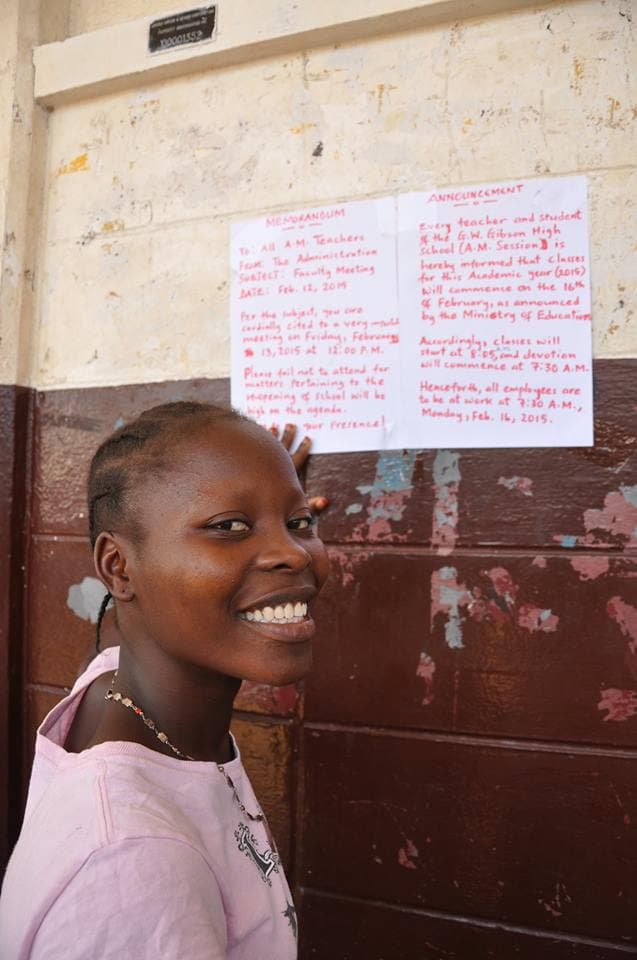 1000001352
MEMORANDUM
To: All A.M. Teachers
FROM: The Administration
SUBJECT: Faculty Meeting
DATE: Feb. 12, 2015
Per the subject, you are
cordially cited to a very
meeting on Friday, February
13, 2015 at 12:00 P.M.
Please fail not to attend for
matters pertaining to the
reopening of school will be
high on the agenda.
your presence!
ANNOUNCEMENT
Every teacher and student
of the G.W. Gibson High
School (A.M. Session) is
hereby informed that classes
for this Academic year (2015)
will commence on the 16th
of February, as announced
by the Ministry of Education.
Accordingly, classes will
start at 8:05, and devotion
will commence at 7:30 AM.
Henceforth, all employees are
to be at work at 7:30 A.M.,
Monday, Feb. 16, 2015.